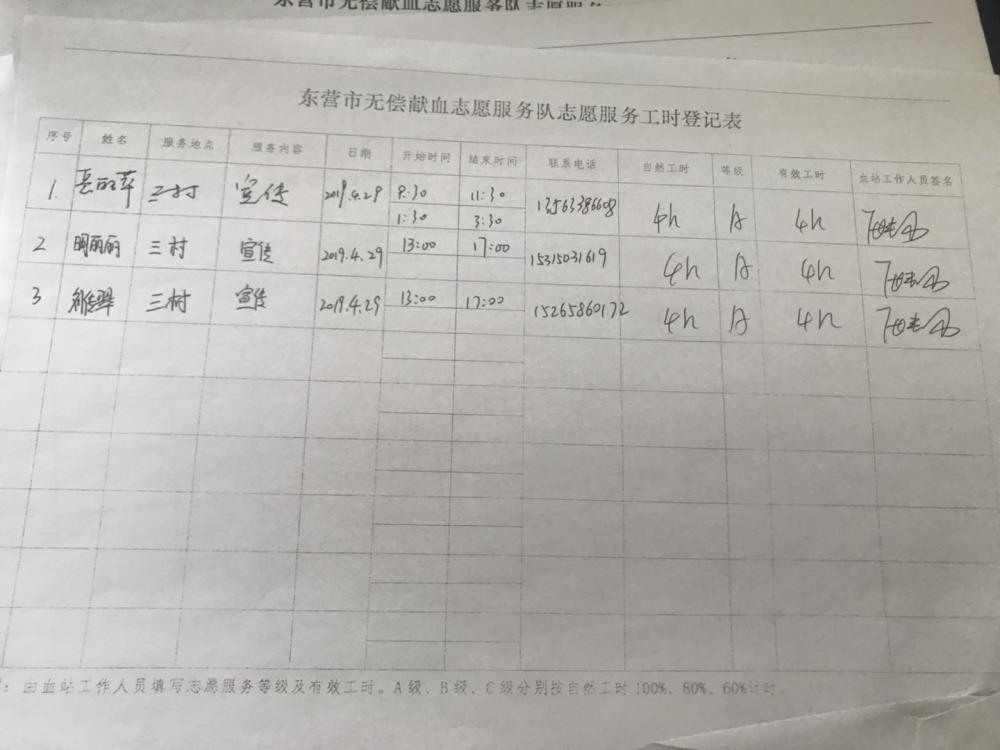 东营市无偿献血志愿服务队志愿服务工时登记表
序号 姓名 服务地点 服务内容 日期 开始时间 结束时间 联系电话 自然工时 等级 有效工时 血站工作人员签名
1. 三村 宣传 2019.4.29 9:30 11:30 13563386608 4h A 4h
1:30 3:30
2 明丽丽 三村 宣传 2019.4.29 13:00 17:00 15315031619 4h A 4h
3 三村 宣传 2019.4.29 13:00 17:00 15265860172 4h A 4h
：由血站工作人员填写志愿服务等级及有效工时。A级、B级、C级分别按自然工时100%、80%、60%计时。